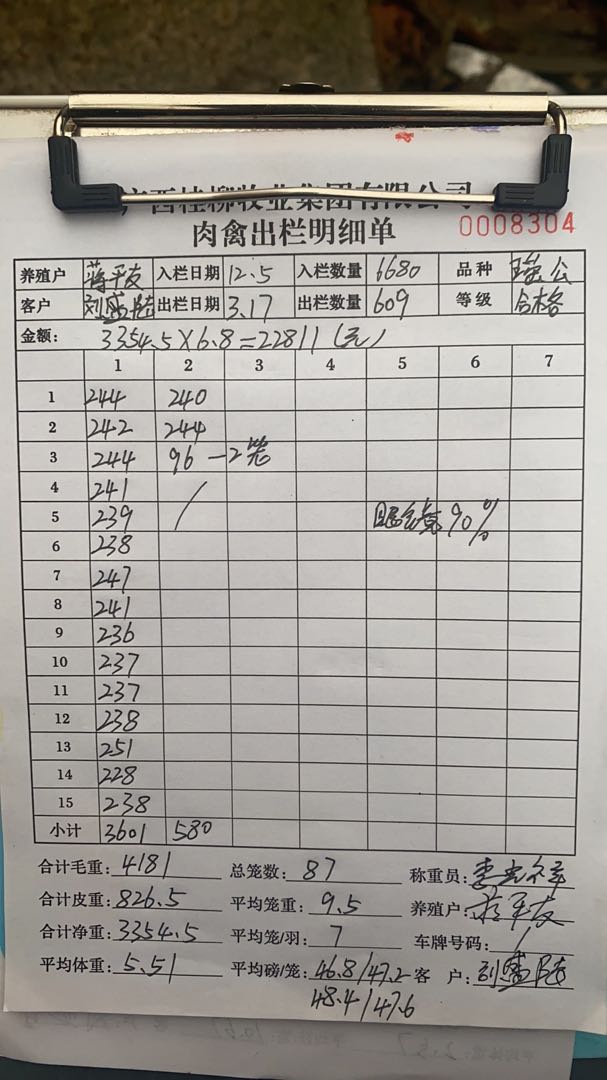 广西桂柳牧业集团有限公司
肉禽出栏明细单 0008304
养殖户 蒋平友 入栏日期 12.5 入栏数量 6680 品种 瑶公
客户 刘盛陆 出栏日期 3.17 出栏数量 609 等级 合格
金额: 3354.5×6.8=22811(元)
1 2 3 4 5 6 7
1 244 240
2 242 244
3 244 96 —2笼
4 241
5 239 90%
6 238
7 247
8 241
9 236
10 237
11 237
12 238
13 251
14 228
15 238
小计 3601 580
合计毛重: 4181 总笼数: 87 称重员:
合计皮重: 826.5 平均笼重: 9.5 养殖户: 蒋平友
合计净重: 3354.5 平均笼/羽: 7 车牌号码: /
平均体重: 5.51 平均磅/笼: 46.8/47.2 客 户: 刘盛陆
48.4/47.6